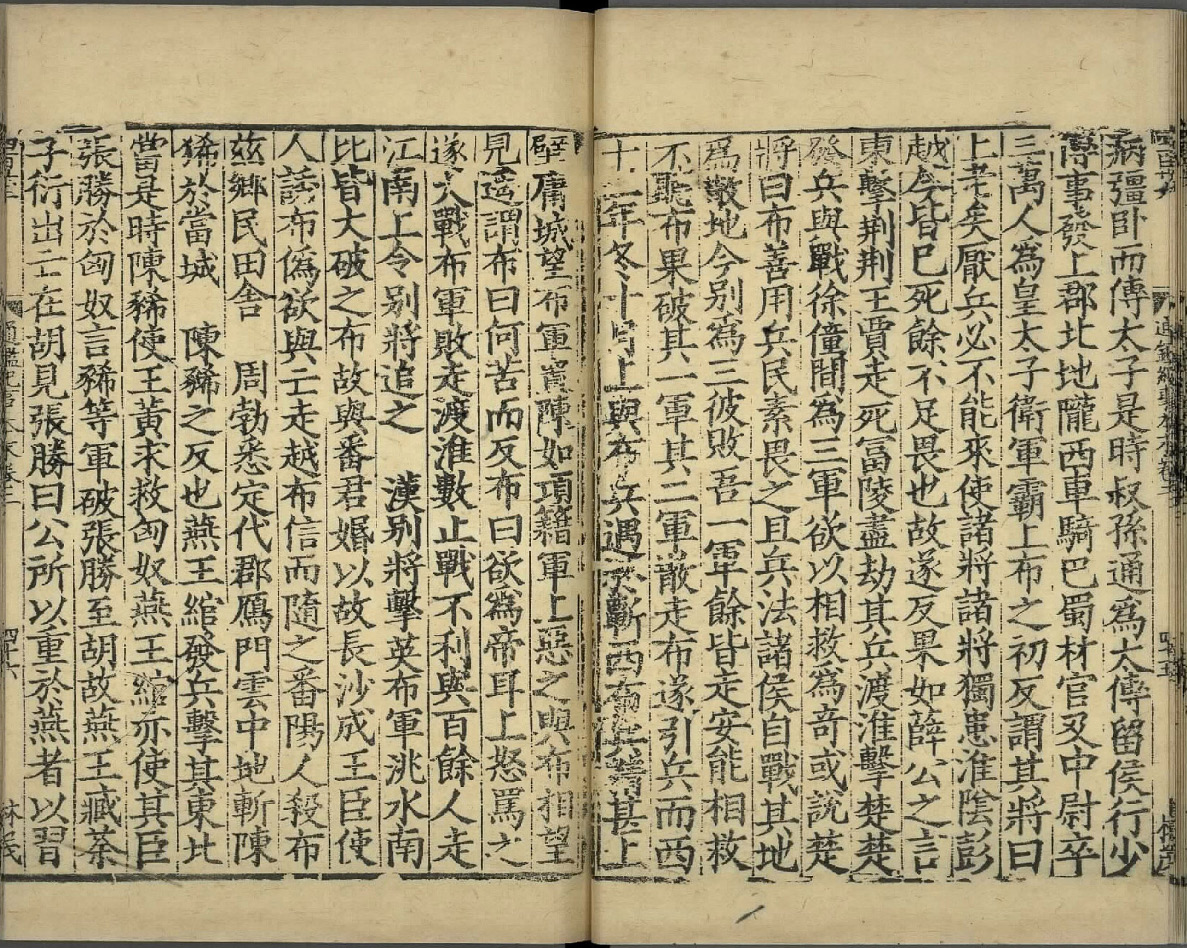 病彊卧而傅太子是時叔孫通為太傅留侯行少
傅事發上郡北地隴西車騎巴蜀材官及中尉卒
三萬人為皇太子衛軍霸上布之初反謂其將曰
上老矣厭兵必不能來使諸將諸將獨患淮陰彭
越今皆已死餘不足畏也故遂反果如薛公之言
東擊荆荆王賈走死富陵盡劫其兵渡淮擊楚楚
發兵與戰徐僮間為三軍欲以相救為奇或說楚
將曰布善用兵民素畏之且兵法諸侯自戰其地
為散地今别為三彼敗吾一軍餘皆走安能相救
不聽布果破其一軍其二軍散走布遂引兵而西
十二年冬十月上與布兵遇於蘄西布兵精甚上
壁庸城望布軍置陳如項籍軍上惡之與布相望
見遥謂布曰何苦而反布曰欲為帝耳上怒罵之
遂大戰布軍敗走渡淮數止戰不利與百餘人走
江南上令别將追之 漢别將擊英布軍洮水南
比皆大破之布故與番君婚以故長沙成王臣使
人誘布偽欲與亡走越布信而隨之番陽人殺布
兹鄉民田舍 周勃悉定代郡鴈門雲中地斬陳
豨於當城 陳豨之反也燕王綰發兵擊其東北
當是時陳豨使王黄求救匈奴燕王綰亦使其臣
張勝於匈奴言豨等軍破張勝至胡故燕王臧荼
子衍出亡在胡見張勝曰公所以重於燕者以習